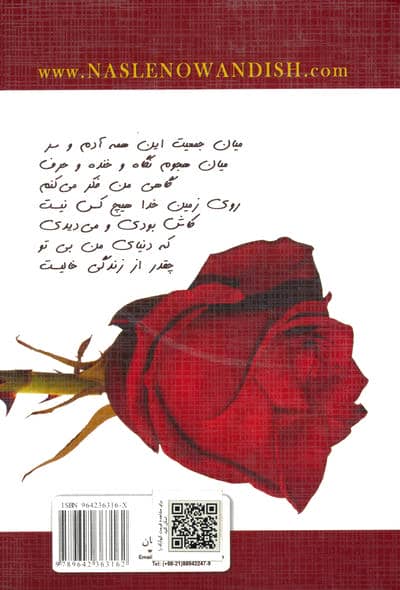 www.NASLENOWANDISH.com
میان جمعیت این همه آدم و سر
میان هجوم نگاه و خنده و حرف
گاهی من فکر می‌کنم
روی زمین خدا هیچ کس نیست
کاش بودی و می‌دیدی
که دنیای من بی تو
چقدر از زندگی خالیست
ISBN 964236316-X
9789642363162
Email
Tel: (+98-21)88942247-9